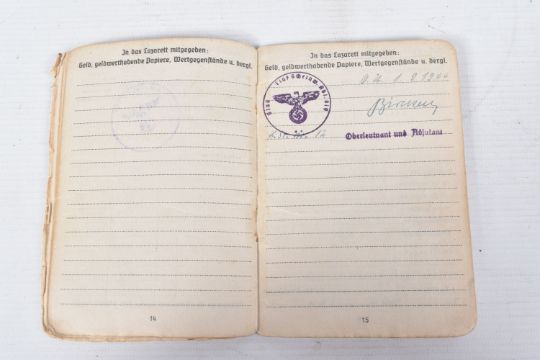 In das Lazarett mitgegeben:
Geld, geldwerthabende Papiere, Wertgegenstände u. dergl.
14
In das Lazarett mitgegeben:
Geld, geldwerthabende Papiere, Wertgegenstände u. dergl.
1944
Oberleutnant und Adjutant
15